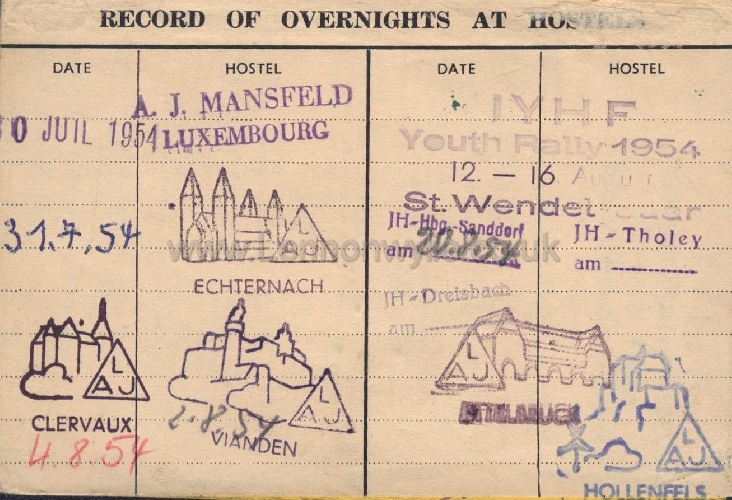 RECORD OF OVERNIGHTS AT HOSTELS
DATE HOSTEL DATE HOSTEL
A. J. MANSFELD
LUXEMBOURG
0 JUIL 1954
31.7.54
LAJ
ECHTERNACH
LAJ
CLERVAUX
4.8.54
LAJ
VIANDEN
2.8.54
IYHF
Youth Rally 1954
12. — 16 August
St. Wendel-Saar
JH-Hbg.-Sanddorf
am
JH-Tholey
am
JH-Dreisbach
am
LAJ
ETTELBRUCK
LAJ
HOLLENFELS